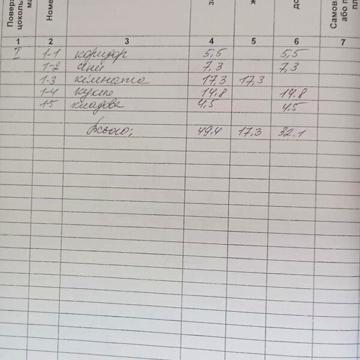 Поверх
цоколь
Номе
Самов
або п
пл
за
ж
до
1 2 3 4 5 6 7
I 1-1 коридор 5,5 5,5
1-2 7,3 7,3
1-3 кімната 17,3 17,3
1-4 кухня 14.8 14.8
1-5 кладова 4,5 4,5
Всього: 49.4 17.3 32.1